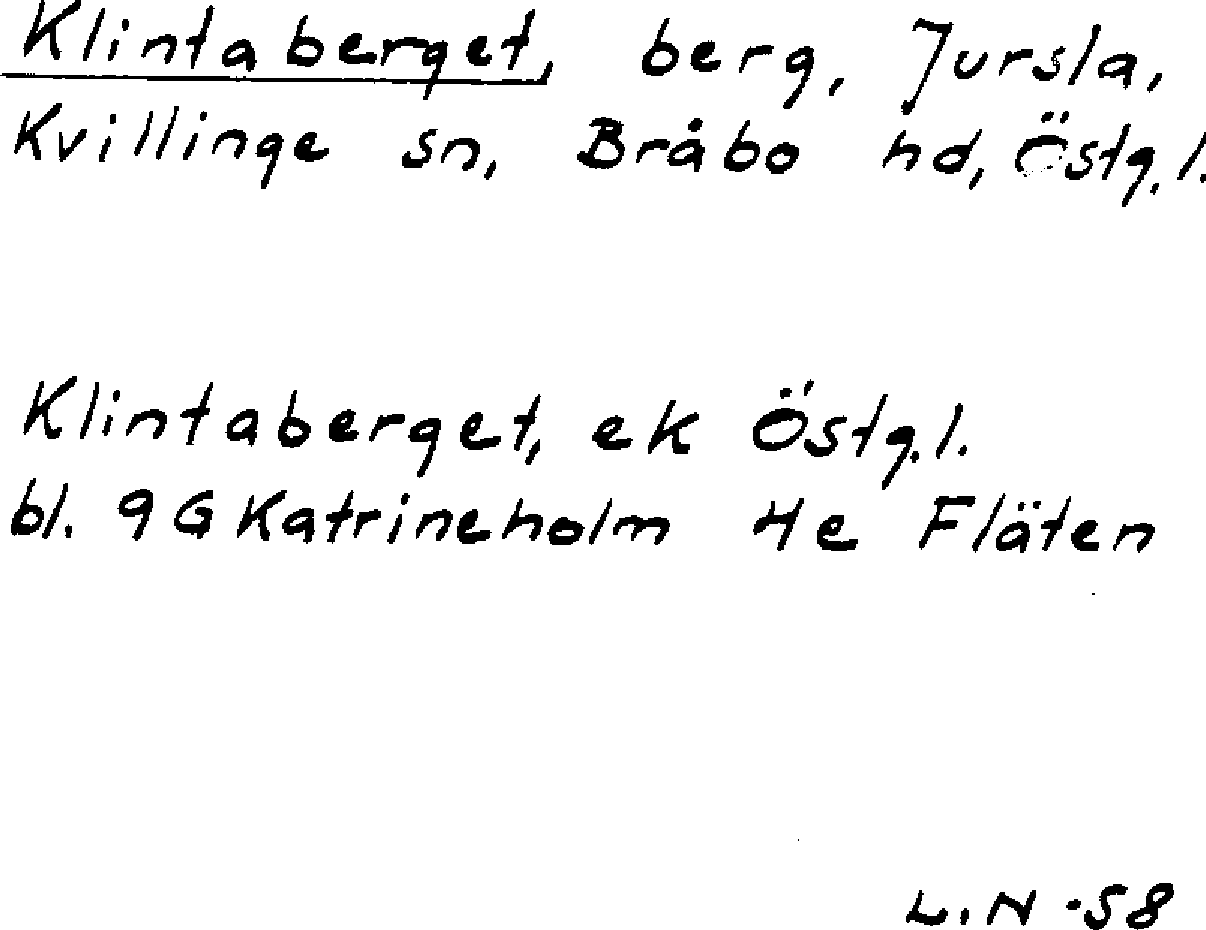 Klintaberget, berg, Jursla,
Kvillinge sn, Bråbo hd, Östg.l.
Klintaberget, ek Östg.l.
bl. 9G Katrineholm 4e Fläten
L.N -58